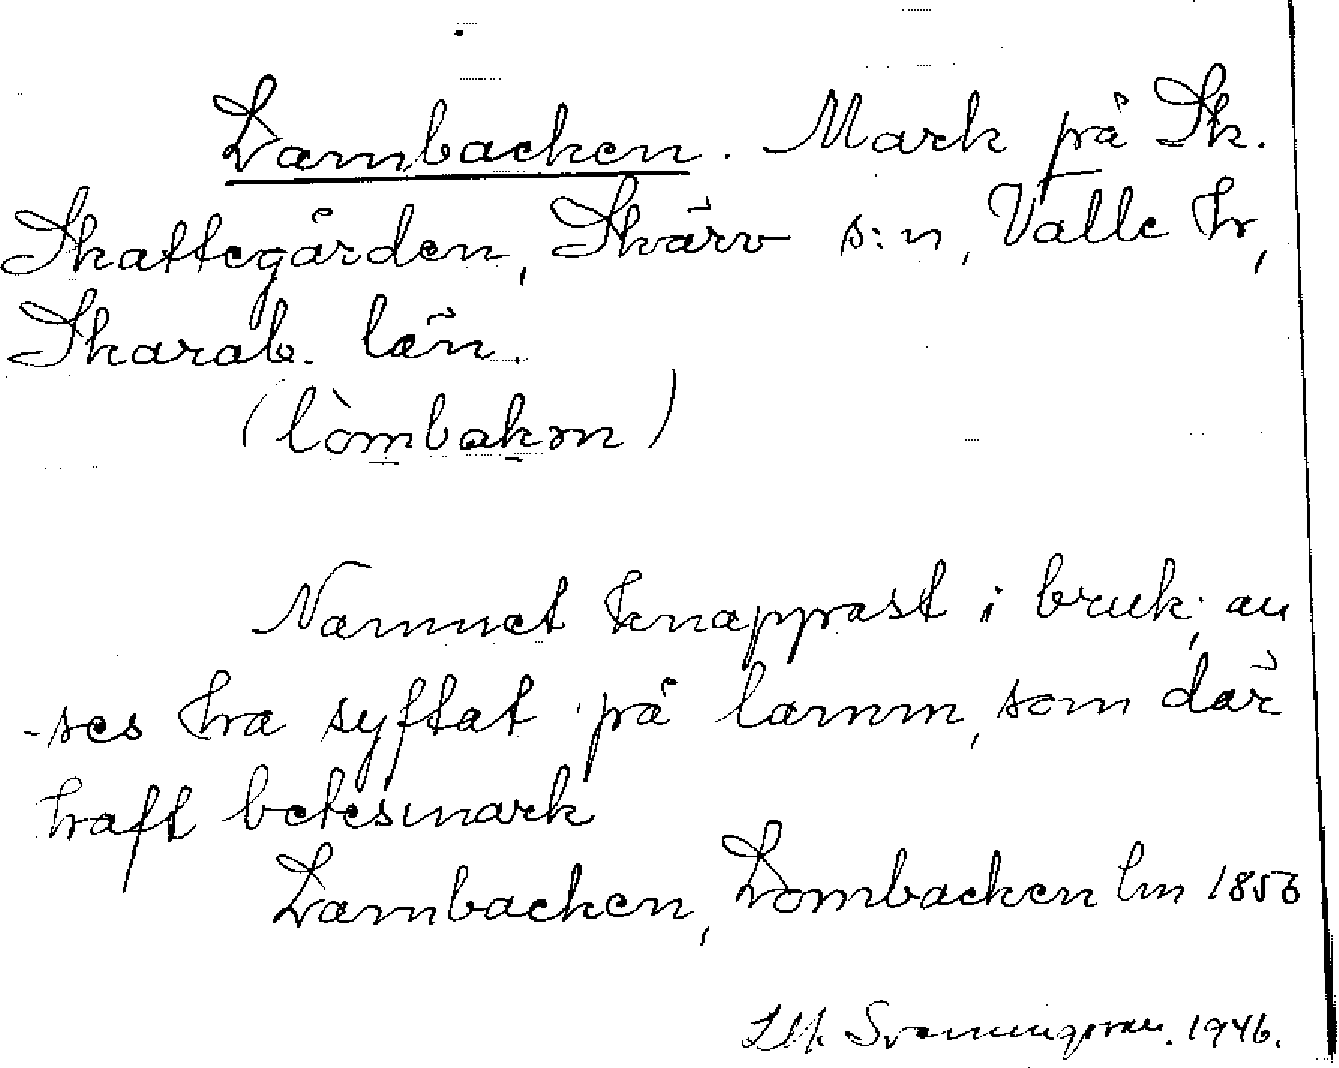 Lambacken. Mark på Sk.
Skattegården, Skärv s:n, Valle hr,
Skarab. län.
(lòmbakm)
Namnet knappast i bruk; an
-ses ha syftat på lamm, som där
haft betesmark
Lambacken, Lombacken lm 1856
Svenningsson. 1946.